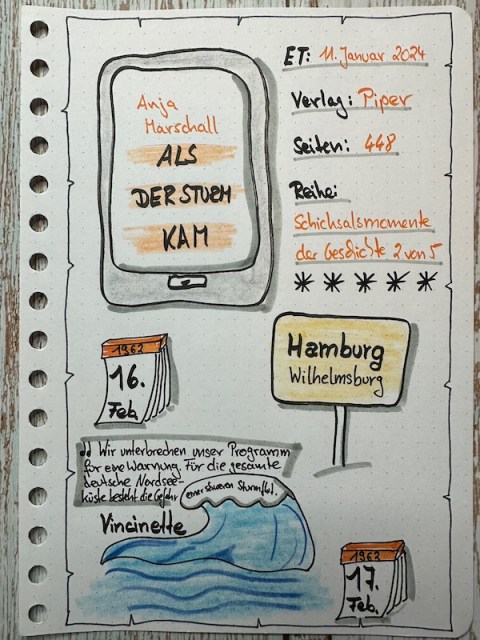 Anja
Marschall
ALS
DER STURM
KAM
ET: 11. Januar 2024
Verlag: Piper
Seiten: 448
Reihe:
Schicksalsmomente
der Geschichte 2 von 5
* * * * *
1962
16.
Feb.
Hamburg
Wilhelmsburg
„ Wir unterbrechen unser Programm
für eine Warnung. Für die gesamte
deutsche Nordsee-
küste besteht die Gefahr
einer schweren Sturmflut.
Vincinette
1962
17.
Feb.